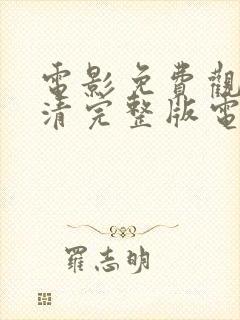 電影免費觀
清完整版電
羅志明